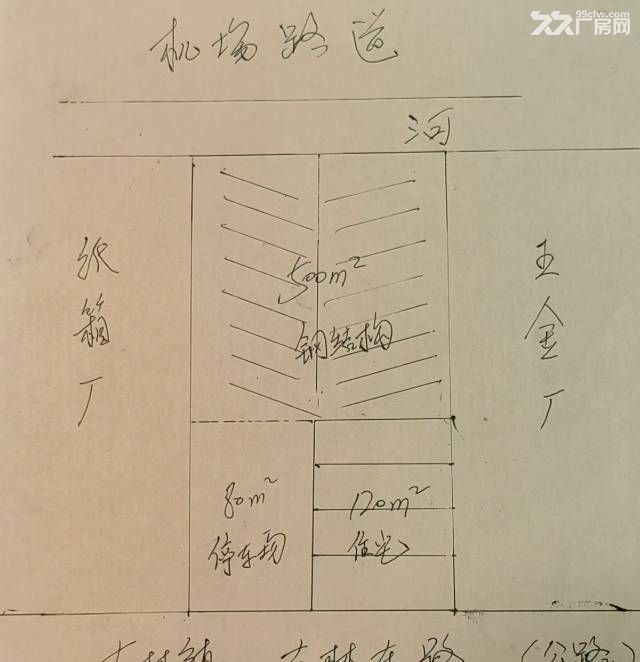 99cfw.com
厂房网
机场路道
河
纸箱厂
500m²
钢结构
五金厂
80m²
停车场
120m²
住宅
古林镇 古林东路 (公路)